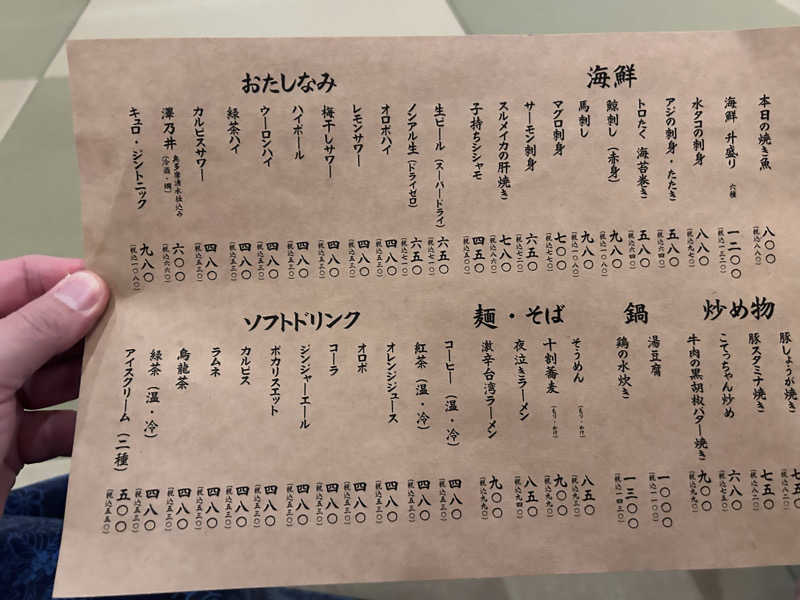 海鮮
本日の焼き魚 八〇〇 (税込八八〇)
海鮮 升盛り 六種 一二〇〇 (税込一三二〇)
水タコの刺身 八八〇 (税込九七〇)
アジの刺身・たたき 五八〇 (税込六四〇)
トロたく 海苔巻き 五八〇 (税込六四〇)
鯨刺し(赤身) 九八〇 (税込一〇八〇)
馬刺し 九八〇 (税込一〇八〇)
マグロ刺身 七〇〇 (税込七七〇)
サーモン刺身 六五〇 (税込七二〇)
スルメイカの肝焼き 七八〇 (税込八六〇)
子持ちシシャモ 四五〇 (税込五〇〇)
おたしなみ
生ビール(スーパードライ) 六五〇 (税込七一〇)
ノンアル生(ドライゼロ) 六五〇 (税込七一〇)
オロポハイ 四八〇 (税込五三〇)
レモンサワー 四八〇 (税込五三〇)
梅干しサワー 四八〇 (税込五三〇)
ハイボール 四八〇 (税込五三〇)
ウーロンハイ 四八〇 (税込五三〇)
緑茶ハイ 四八〇 (税込五三〇)
カルピスサワー 四八〇 (税込五三〇)
澤乃井 奥多摩湧水仕込み(冷酒・燗) 六〇〇 (税込六六〇)
キュロ・ジントニック 九八〇 (税込一〇八〇)
炒め物
豚しょうが焼き
豚スタミナ焼き 七五〇
こてっちゃん炒め 六八〇 (税込七五〇)
牛肉の黒胡椒バター焼き 九〇〇 (税込九九〇)
鍋
湯豆腐 一〇〇〇 (税込一一〇〇)
鶏の水炊き 一三〇〇 (税込一四三〇)
麺・そば
そうめん 八五〇
十割蕎麦 九〇〇 (税込九九〇)
夜泣きラーメン 八五〇 (税込九四〇)
激辛台湾ラーメン 九〇〇 (税込九九〇)
ソフトドリンク
コーヒー(温・冷) 四八〇 (税込五三〇)
紅茶(温・冷) 四八〇 (税込五三〇)
オレンジジュース 四八〇 (税込五三〇)
オロポ 四八〇 (税込五三〇)
コーラ 四八〇 (税込五三〇)
ジンジャーエール 四八〇 (税込五三〇)
ポカリスエット 四八〇 (税込五三〇)
カルピス 四八〇 (税込五三〇)
ラムネ 四八〇 (税込五三〇)
烏龍茶 四八〇 (税込五三〇)
緑茶(温・冷) 四八〇 (税込五三〇)
アイスクリーム(二種) 五〇〇 (税込五五〇)